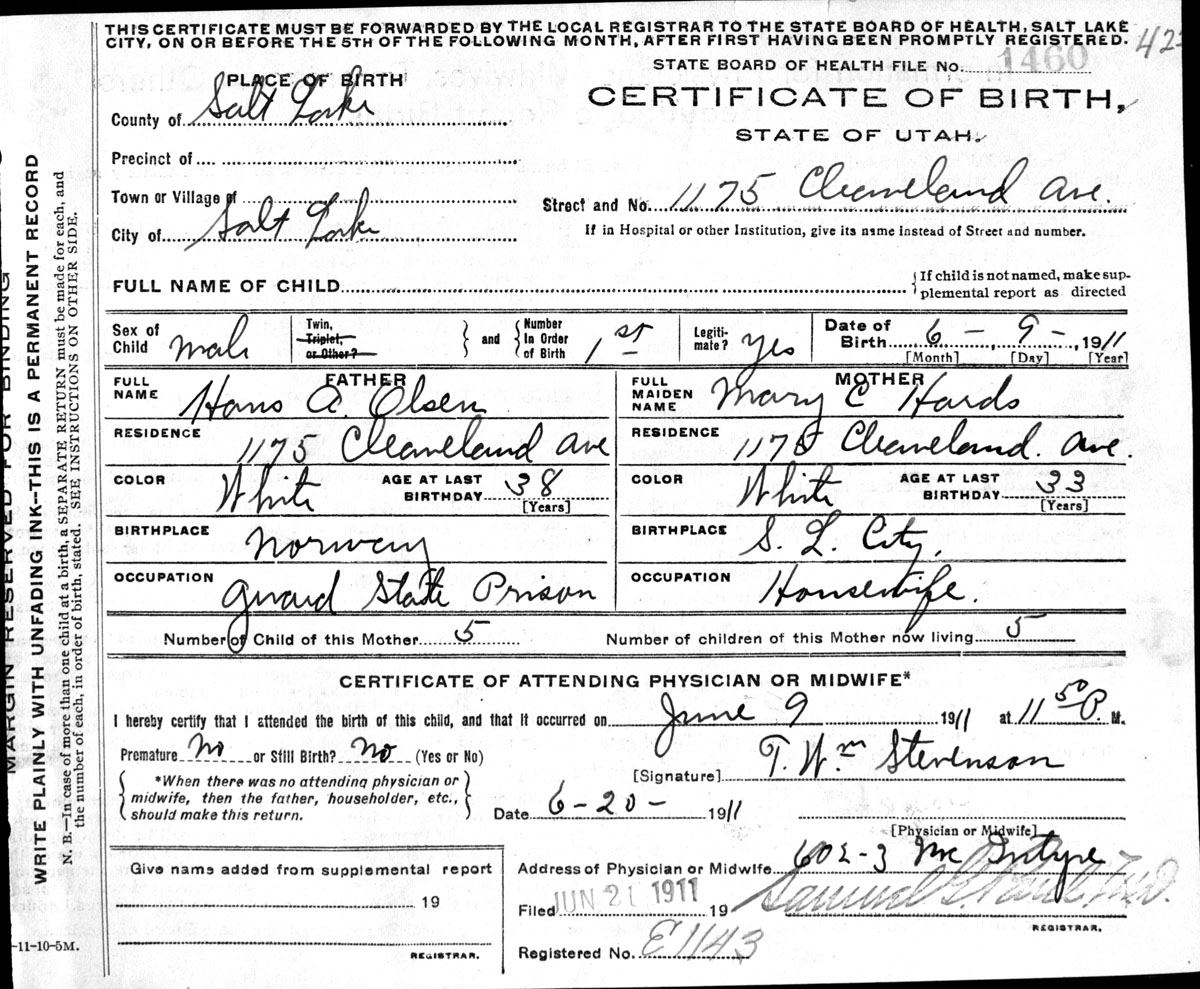 THIS CERTIFICATE MUST BE FORWARDED BY THE LOCAL REGISTRAR TO THE STATE BOARD OF HEALTH, SALT LAKE
CITY, ON OR BEFORE THE 5TH OF THE FOLLOWING MONTH, AFTER FIRST HAVING BEEN PROMPTLY REGISTERED.
STATE BOARD OF HEALTH FILE No. 1460
PLACE OF BIRTH
CERTIFICATE OF BIRTH,
County of Salt Lake
STATE OF UTAH.
Precinct of
Town or Village of
Street and No. 1175 Cleaveland Ave.
City of Salt Lake
If in Hospital or other Institution, give its name instead of Street and number.
FULL NAME OF CHILD
{ If child is not named, make sup-
plemental report as directed
Sex of Child male
Twin, Triplet, or Other? } and { Number In Order of Birth 1st
Legiti-mate? yes
Date of Birth 6 - 9 - 1911
[Month] [Day] [Year]
FATHER
FULL NAME Hans A. Olsen
RESIDENCE 1175 Cleaveland Ave
COLOR White AGE AT LAST BIRTHDAY 38 [Years]
BIRTHPLACE Norway
OCCUPATION Guard State Prison
MOTHER
FULL MAIDEN NAME Mary E Hards
RESIDENCE 1175 Cleaveland. Ave.
COLOR White AGE AT LAST BIRTHDAY 33 [Years]
BIRTHPLACE S. L. City,
OCCUPATION Housewife.
Number of Child of this Mother 5 Number of children of this Mother now living 5
CERTIFICATE OF ATTENDING PHYSICIAN OR MIDWIFE*
I hereby certify that I attended the birth of this child, and that it occurred on June 9 1911 at 11 50 P. M.
Premature No or Still Birth? No (Yes or No)
[Signature] T. Wm Stevenson
{ *When there was no attending physician or
midwife, then the father, householder, etc.,
should make this return. }
Date 6-20- 1911
[Physician or Midwife]
Address of Physician or Midwife 602-3 Mc Intyre
Filed JUN 21 1911 19 Samuel G. M.D.
REGISTRAR.
Registered No. E1143
Give name added from supplemental report
19
REGISTRAR.
-11-10-5M.
MARGIN RESERVED FOR BINDING
WRITE PLAINLY WITH UNFADING INK--THIS IS A PERMANENT RECORD
N. B.—In case of more than one child at a birth, a SEPARATE RETURN must be made for each, and
the number of each, in order of birth, stated. SEE INSTRUCTIONS ON OTHER SIDE.